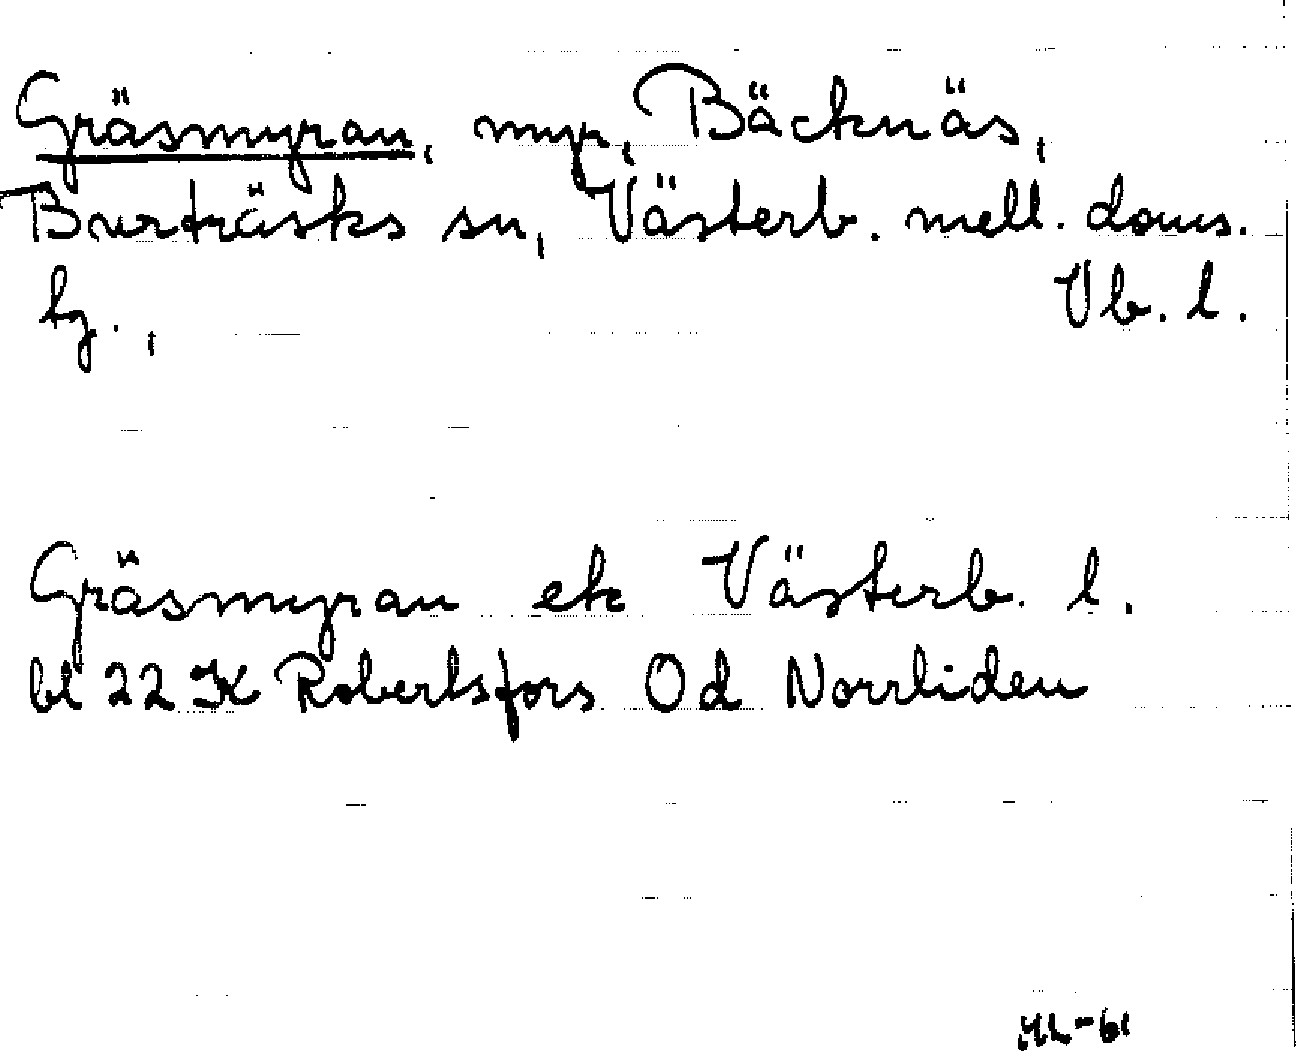 Gräsmyran, myr, Bäcknäs,
Burträsks sn, Västerb. mell. doms.
tg., Vb. l.
Gräsmyran ek Västerb. l.
bl 22 K Robertsfors Od Norrliden